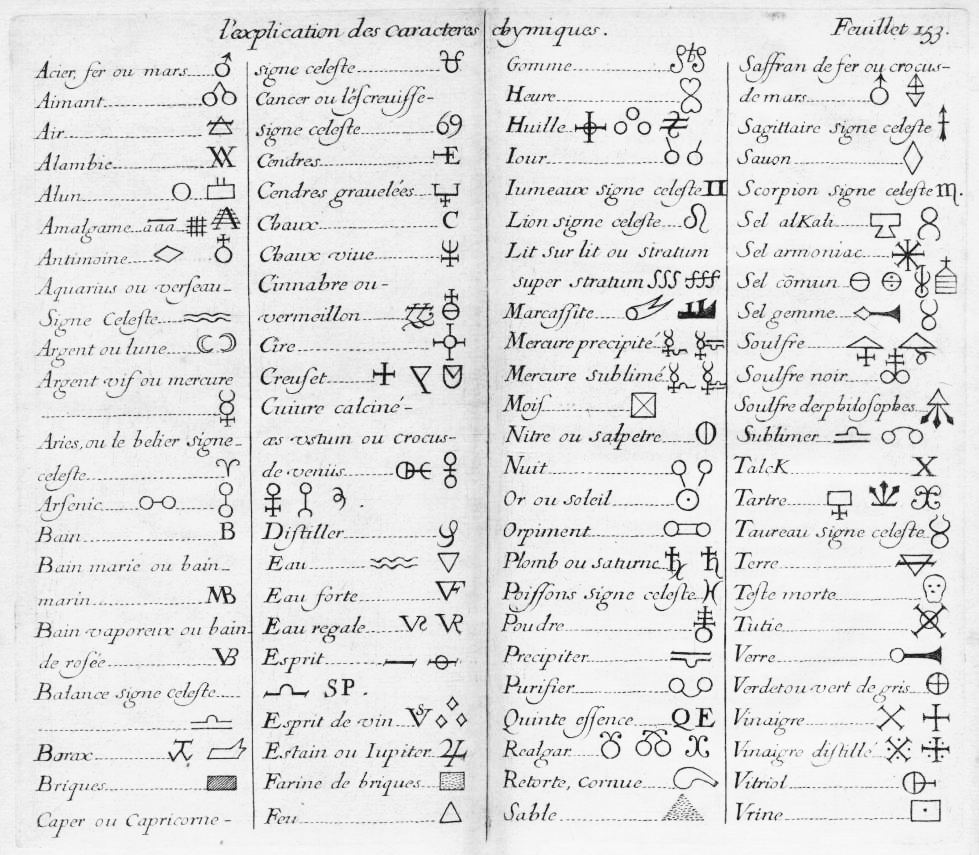 l'explication des Caracteres chymiques. Feuillet 153.
Acier, fer ou mars
Aimant
Air
Alambic
Alun
Amalgame aaa
Antimoine
Aquarius ou verseau-
Signe Celeste
Argent ou lune
Argent vif ou mercure
Aries, ou le belier signe-
celeste
Arsenic
Bain B
Bain marie ou bain-
marin MB
Bain vaporeux ou bain
de rosée VB
Balance signe celeste
Borax
Briques
Caper ou Capricorne-
signe celeste
Cancer ou l'escreuisse-
signe celeste 69
Cendres E
Cendres grauelées
Chaux C
Chaux viue
Cinnabre ou-
vermeillon
Cire
Creuset
Cuiure calciné-
æs vstum ou crocus-
de venus
Distiller
Eau
Eau forte VF
Eau regale VR
Esprit
SP.
Esprit de vin VS
Estain ou Iupiter
Farine de briques
Feu
Gomme
Heure
Huille
Iour
Iumeaux signe celeste
Lion signe celeste
Lit sur lit ou stratum
super stratum SSS
Marcassite
Mercure precipité
Mercure sublimé
Mois
Nitre ou salpetre
Nuit
Or ou soleil
Orpiment
Plomb ou saturne
Poissons signe celeste
Poudre
Precipiter
Purifier
Quinte essence Q E
Realgar
Retorte, cornue
Sable
Saffran de fer ou crocus-
de mars
Sagittaire signe celeste
Sauon
Scorpion signe celeste
Sel alKali
Sel armoniac
Sel cõmun
Sel gemme
Soulfre
Soulfre noir
Soulfre des philosophes
Sublimer
TalcK X
Tartre
Taureau signe celeste
Terre
Teste morte
Tutie
Verre
Verdet ou vert de gris
Vinaigre
Vinaigre distillé
Vitriol
Vrine